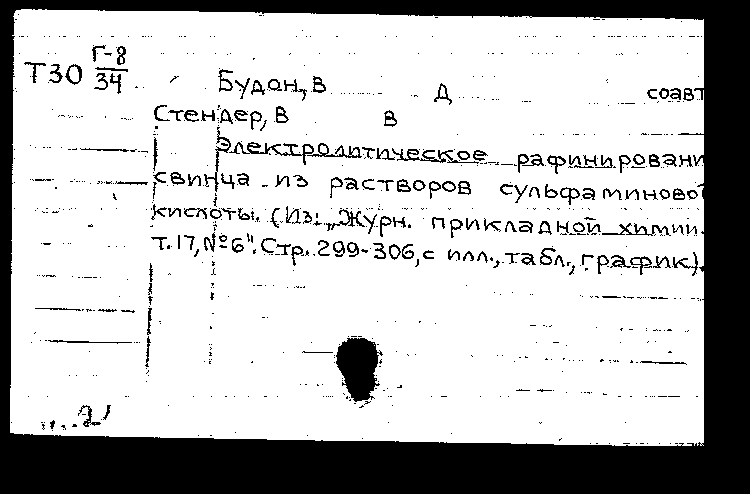 Т30 Г-8/34
Будон, В Д соавт
Стендер, В В
Электролитическое рафинировани
свинца из растворов сульфаминовой
кислоты. (Из: „Журн. прикладной химии.
т. 17, №6". Стр. 299-306, с илл., табл., график).